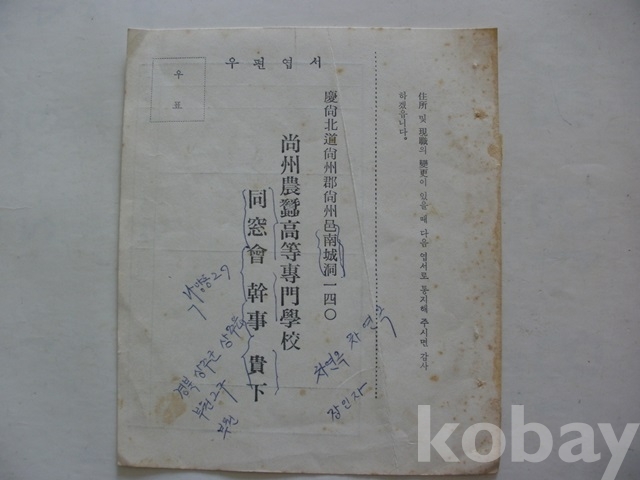 住所 및 現職의 變更이 있을 때 다음 엽서로 통지해 주시면 감사
하겠읍니다.
우편엽서
우표
慶尙北道尙州郡尙州邑南城洞一四〇
尚州農蠶高等專門學校
同窓會 幹事 貴下
차연옥 차연
장인자
경북 상주군 상주읍
부원2구
부원
kobay